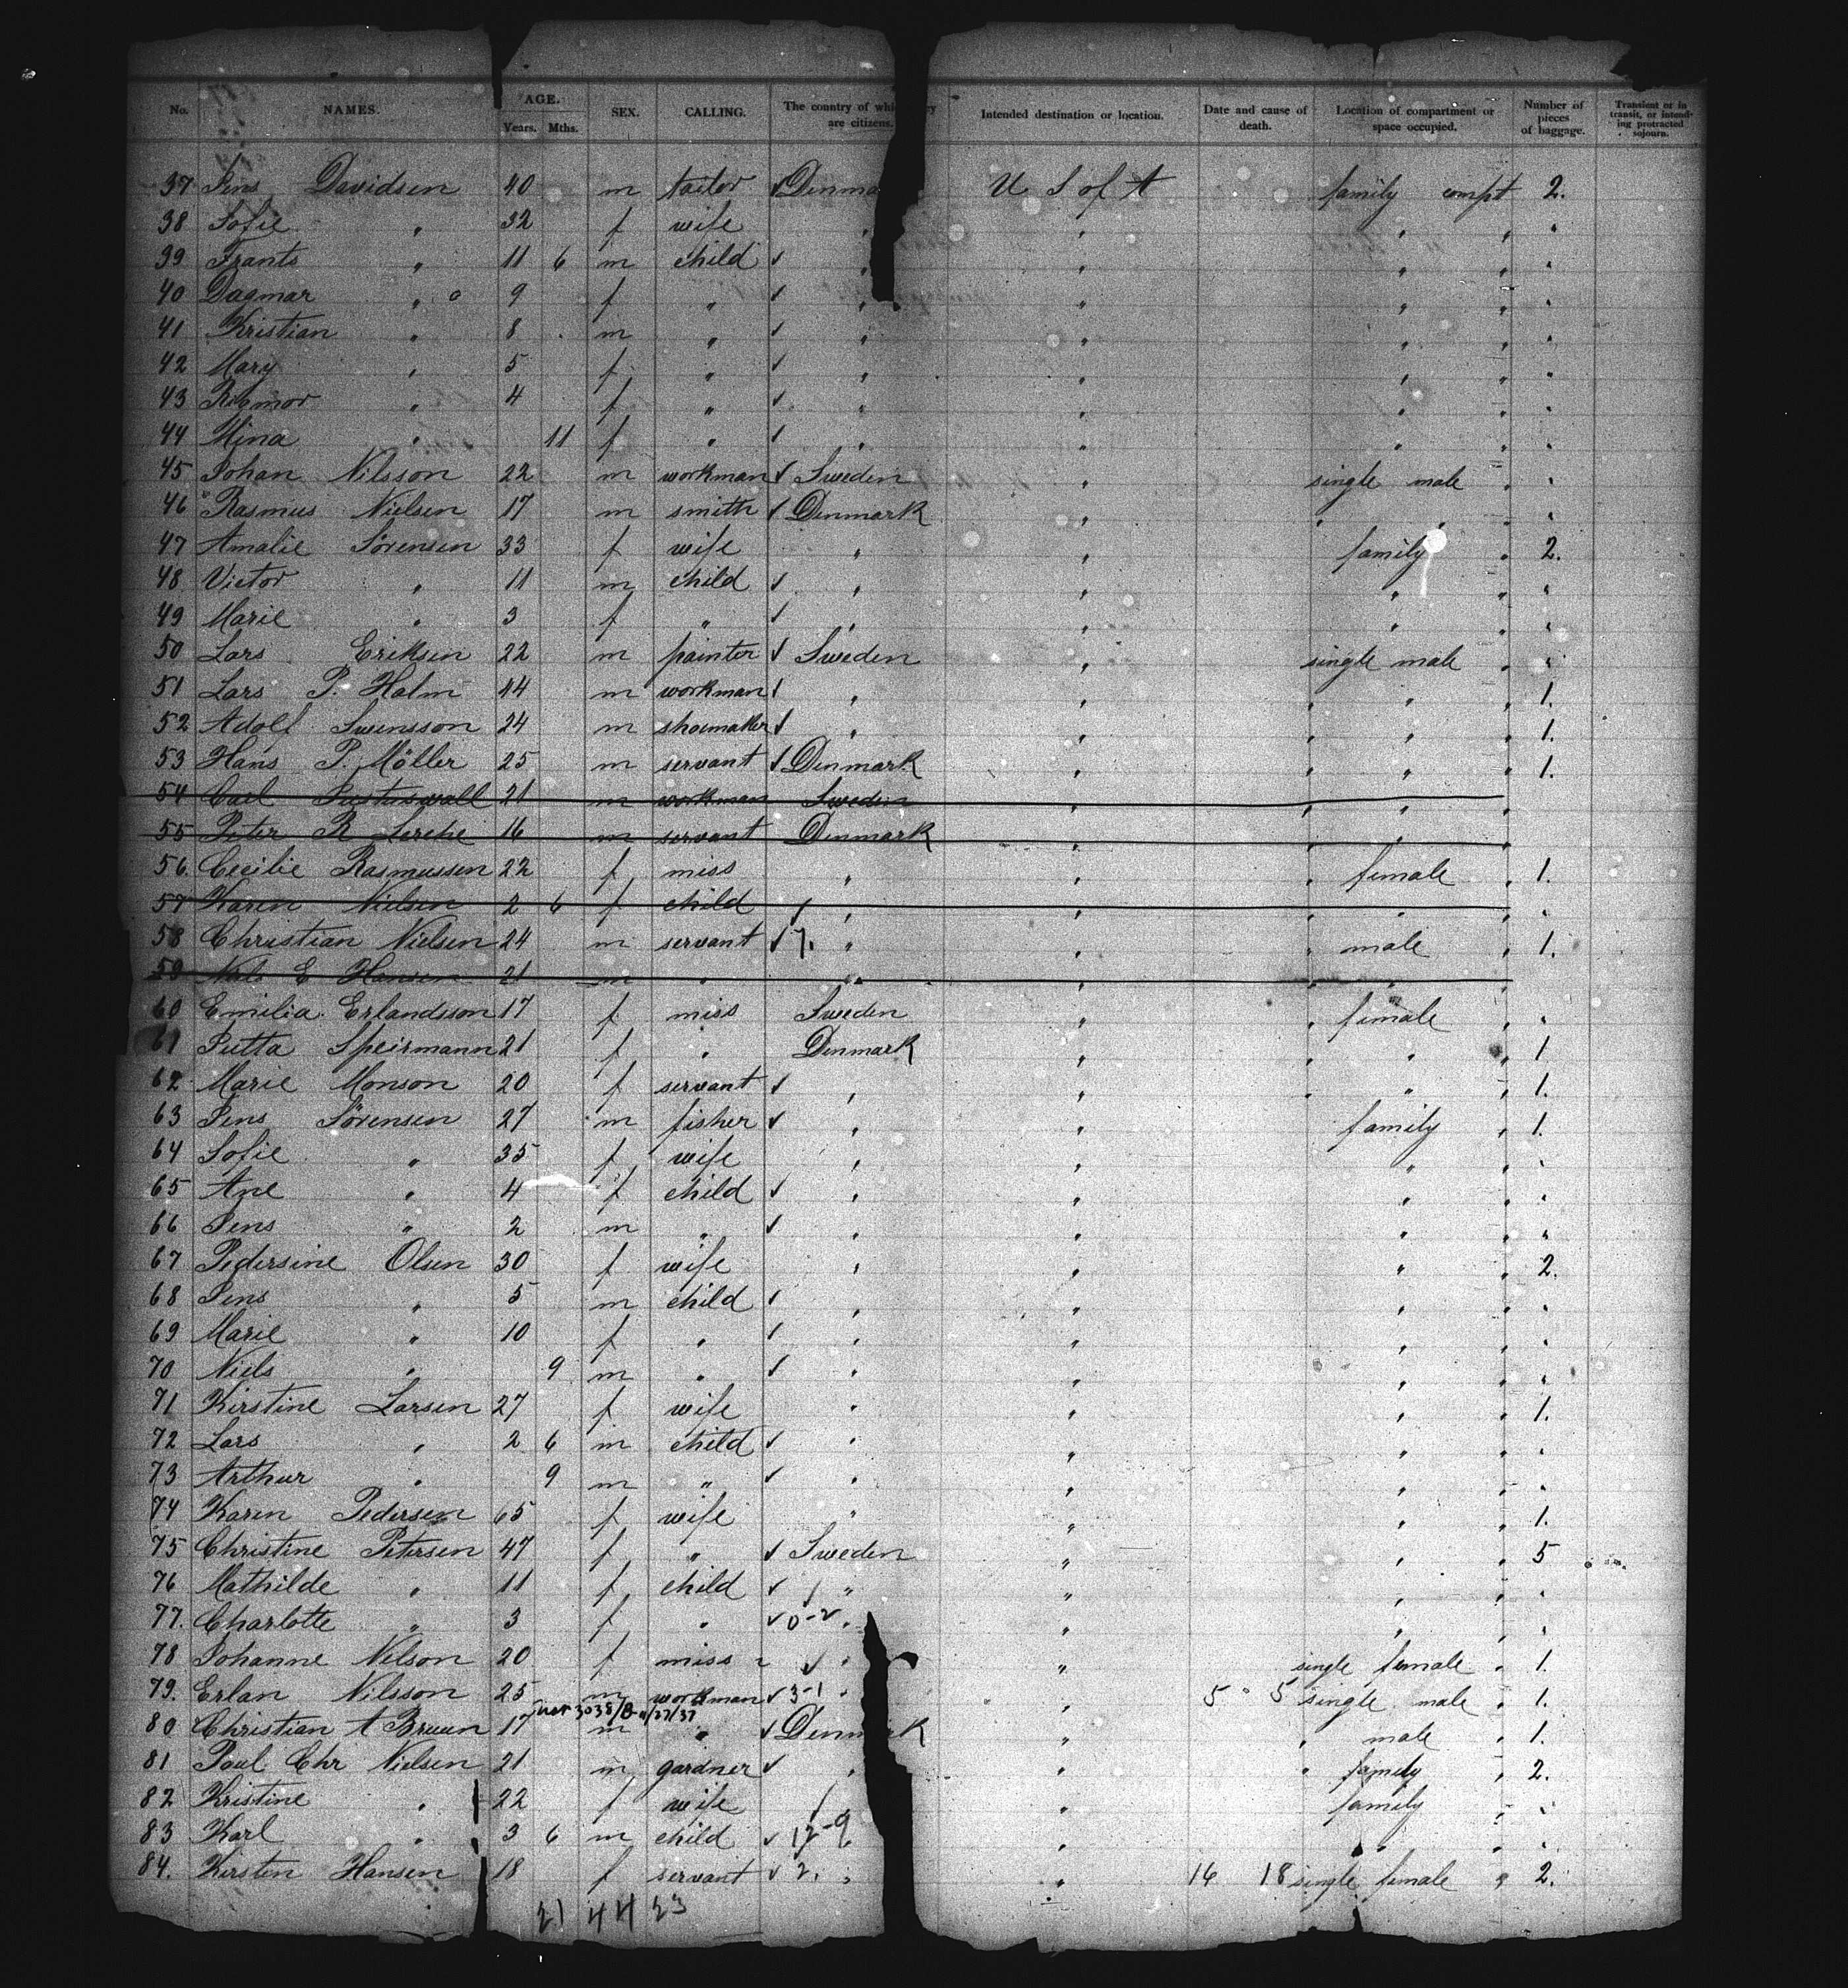 No. NAMES. AGE. Years. Mths. SEX. CALLING. The country of whi are citizens. Intended destination or location. Date and cause of death. Location of compartment or space occupied. Number of pieces of baggage. Transient or in transit, or intending protracted sojourn.
37 Jens Davidsen 40 m tailor ✓ Denma U S of A family compt 2.
38 Sofie " 32 f wife " " " " "
39 Frants " 11 6 m child ✓ " " " " "
40 Dagmar " 9 f " ✓ " " " " "
41 Kristian " 8 m " ✓ " " " " "
42 Mary " 5 f " ✓ " " " " "
43 Rigmor " 4 f " ✓ " " " " "
44 Mina " 11 f " ✓ " " " " "
45 Johan Nilsson 22 m workman ✓ Sweden " single male " "
46 Rasmus Nielsen 17 m smith ✓ Denmark " " " " "
47 Amalie Sörensen 33 f wife " " family " 2.
48 Victor " 11 m child ✓ " " " " "
49 Marie " 3 f " ✓ " " " " "
50 Lars Eriksen 22 m painter ✓ Sweden " single male " "
51 Lars P. Halm 44 m workman ✓ " " " " " 1.
52 Adolf Swensson 24 m shoemaker ✓ " " " " " 1.
53 Hans P. Möller 25 m servant ✓ Denmark " " " " 1.
54 Carl 21 m workman Sweden " " " "
55 Peter R Lerche 16 m servant Denmark " " " "
56. Cecilie Rasmussen 22 f miss " " " female " 1.
57 Karen Nielsen 2 6 f child " " " " " "
58 Christian Nielsen 24 m servant ✓ 7. " " " male " 1.
59 Niels E Hansen 21 m " " " " " "
60 Emilia Erlandsson 17 f miss Sweden " " female " "
61 Jutta Speirmann 21 f " Denmark " " " " 1
62 Marie Monson 20 f servant ✓ " " " " " 1.
63 Jens Sörensen 27 m fisher ✓ " " family " 1.
64 Sofie " 35 f wife " " " " "
65 Ane " 4 f child ✓ " " " " "
66 Jens " 2 m " ✓ " " " " "
67 Pedersine Olsen 30 f wife " " " " 2.
68 Jens " 5 m child ✓ " " " " "
69 Marie " 10 f " ✓ " " " " "
70 Niels " 9 m " ✓ " " " " "
71 Kirstine Larsen 27 f wife " " " " 1.
72 Lars " 2 6 m child ✓ " " " " "
73 Arthur " 9 m " ✓ " " " " "
74 Karen Pedersen 65 f wife " " " " 1.
75 Christine Petersen 47 f " ✓ Sweden " " " 5
76 Mathilde " 11 f child ✓ / " " " " "
77. Charlotte " 3 f " ✓ 0-2 " " " " "
78 Johanne Nelson 20 f miss ✓ " " single female " 1.
79. Erlan Nilsson 25 m workman ✓ 3-1 " " 5 " 5 single male " 1.
80 Christian A Bruun 17 m " ✓ Denm k " " male " 1.
81 Poul Chr Nielsen 21 m gardner ✓ " " " family " 2.
82 Kristine " 22 f wife / " family " "
83 Karl " 3 6 m child ✓ 12-9 " " " "
84. Kirsten Hansen 18 f servant ✓ 2. " " 16 18 single female " 2.
21 44 23